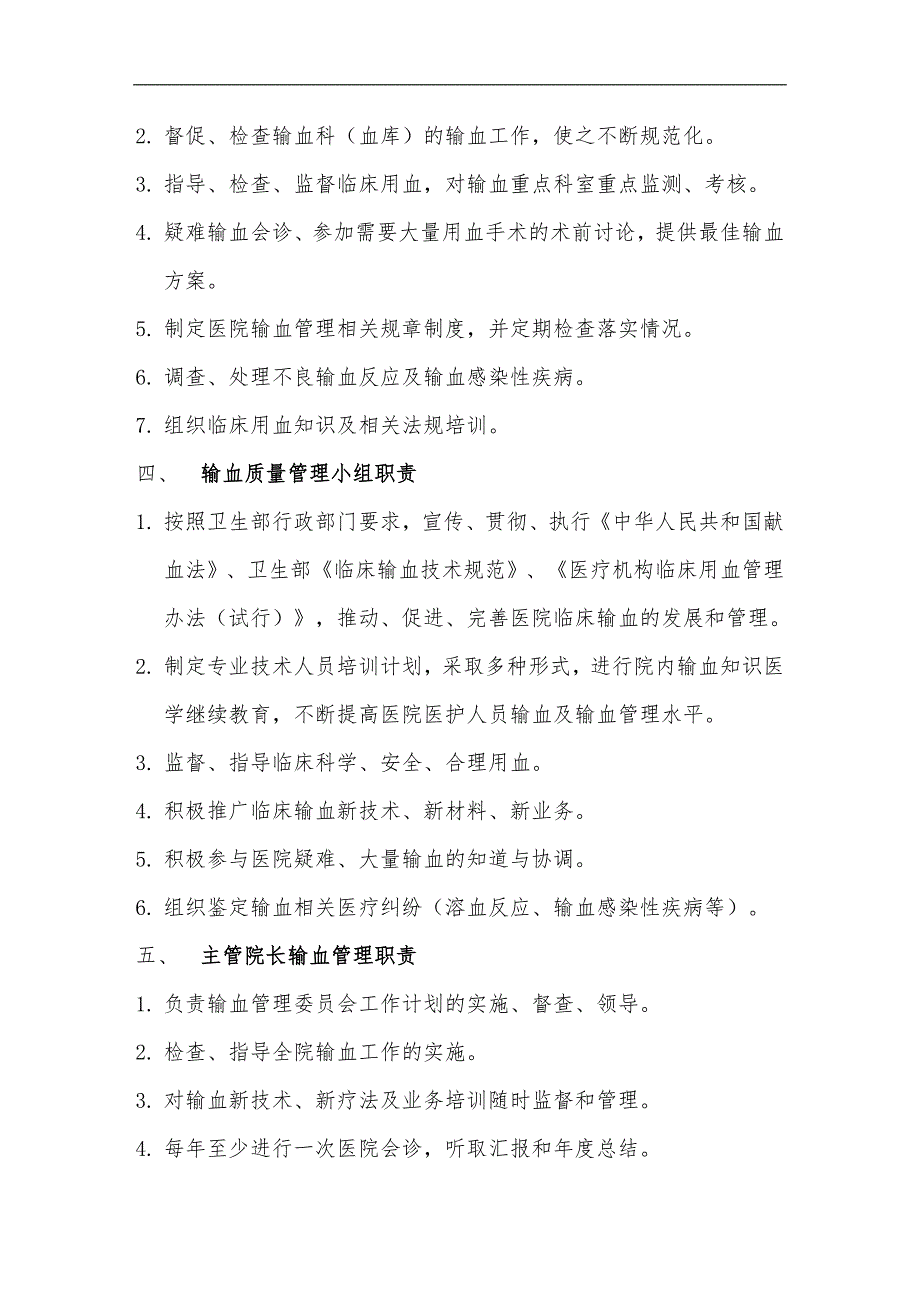 2. 督促、检查输血科（血库）的输血工作，使之不断规范化。
3. 指导、检查、监督临床用血，对输血重点科室重点监测、考核。
4. 疑难输血会诊、参加需要大量用血手术的术前讨论，提供最佳输血
方案。
5. 制定医院输血管理相关规章制度，并定期检查落实情况。
6. 调查、处理不良输血反应及输血感染性疾病。
7. 组织临床用血知识及相关法规培训。
四、 输血质量管理小组职责
1. 按照卫生部行政部门要求，宣传、贯彻、执行《中华人民共和国献
血法》、卫生部《临床输血技术规范》、《医疗机构临床用血管理
办法（试行）》，推动、促进、完善医院临床输血的发展和管理。
2. 制定专业技术人员培训计划，采取多种形式，进行院内输血知识医
学继续教育，不断提高医院医护人员输血及输血管理水平。
3. 监督、指导临床科学、安全、合理用血。
4. 积极推广临床输血新技术、新材料、新业务。
5. 积极参与医院疑难、大量输血的知道与协调。
6. 组织鉴定输血相关医疗纠纷（溶血反应、输血感染性疾病等）。
五、 主管院长输血管理职责
1. 负责输血管理委员会工作计划的实施、督查、领导。
2. 检查、指导全院输血工作的实施。
3. 对输血新技术、新疗法及业务培训随时监督和管理。
4. 每年至少进行一次医院会诊，听取汇报和年度总结。